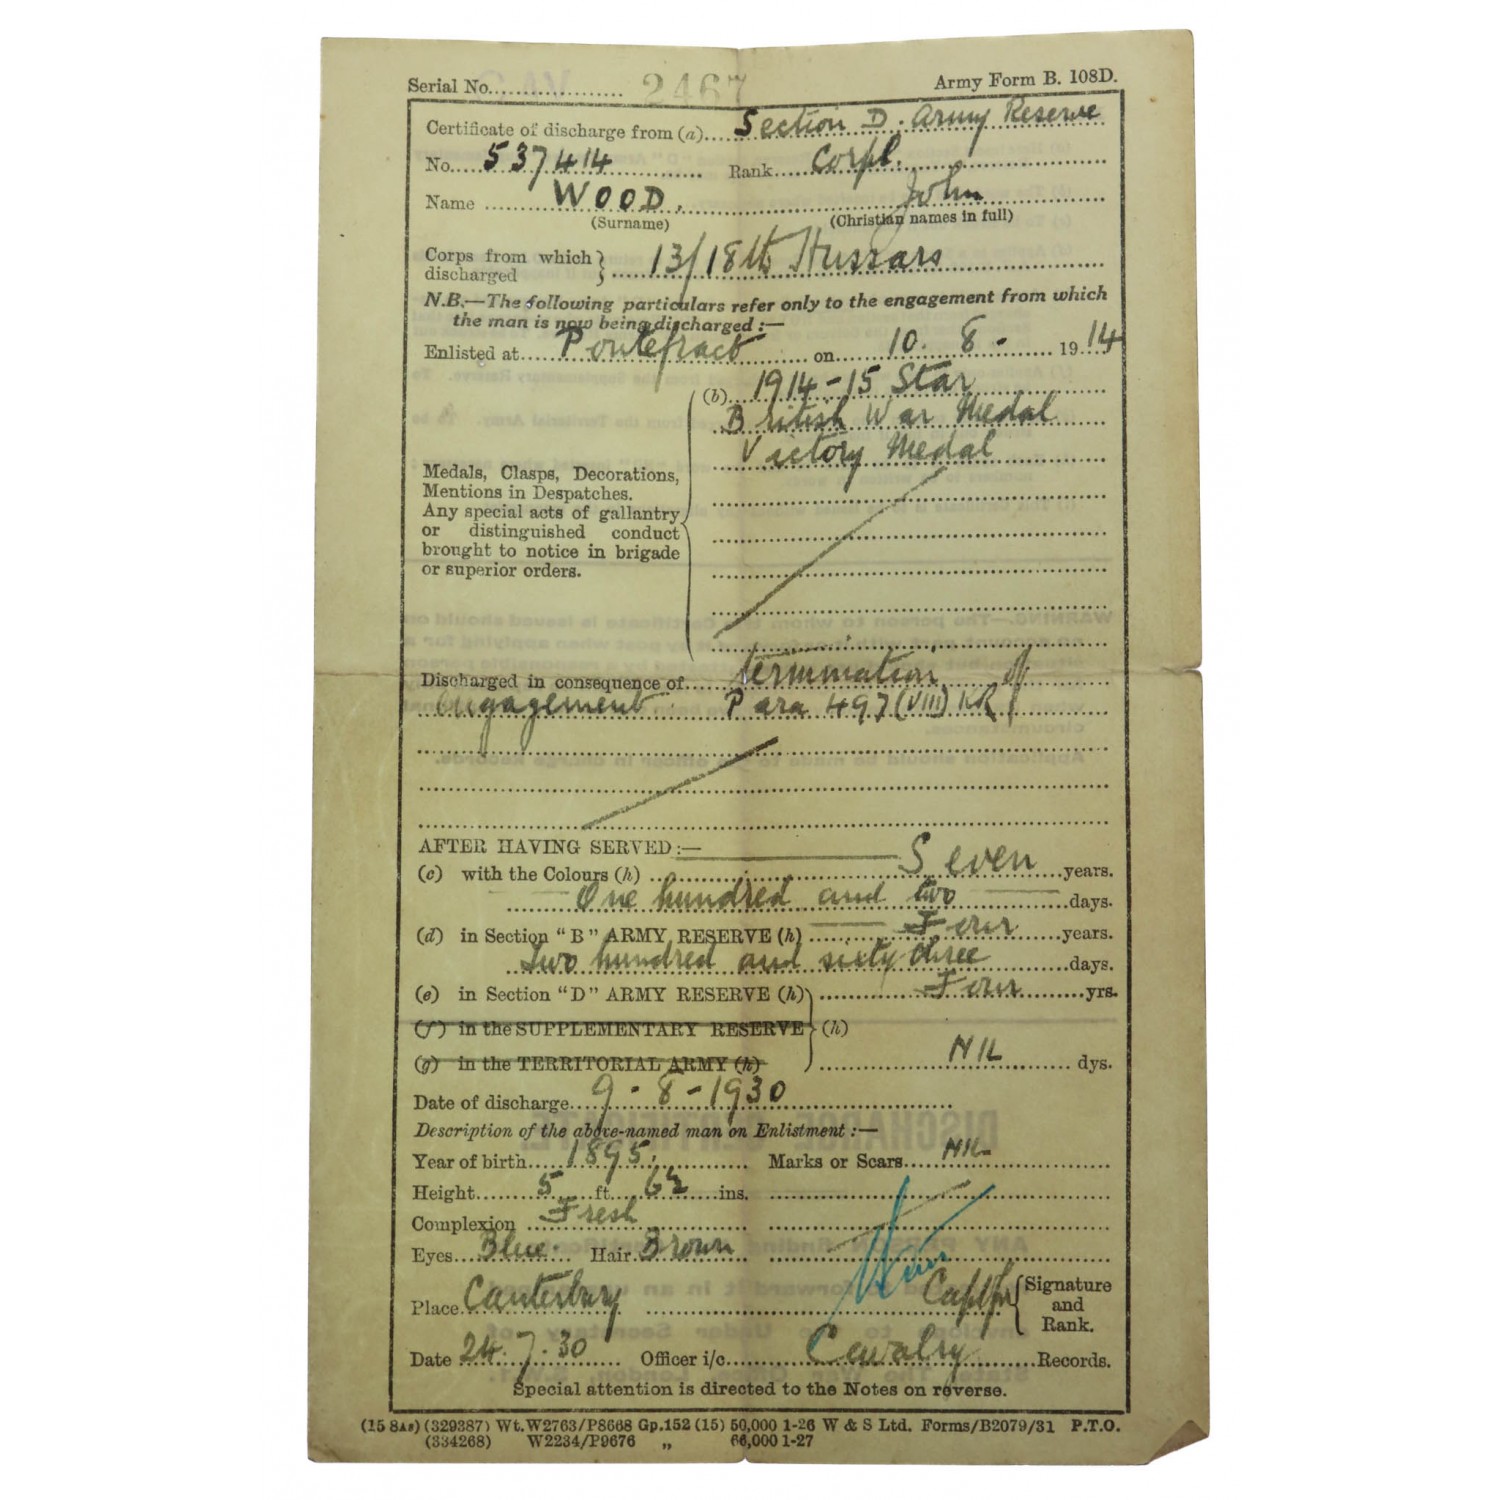 Serial No. 2467 Army Form B. 108D.
Certificate of discharge from (a) Section D. Army Reserve
No. 537414 Rank Corpl.
Name WOOD. John
(Surname) (Christian names in full)
Corps from which discharged } 13/18th Hussars
N.B.—The following particulars refer only to the engagement from which
the man is now being discharged :—
Enlisted at Pontefract on 10. 8. 1914
(b) 1914-15 Star
British War Medal
Victory Medal
Medals, Clasps, Decorations,
Mentions in Despatches.
Any special acts of gallantry
or distinguished conduct
brought to notice in brigade
or superior orders.
Discharged in consequence of termination of
engagement Para 497 (VIII) KR
AFTER HAVING SERVED :—
(c) with the Colours (h) Seven years.
One hundred and two days.
(d) in Section "B" ARMY RESERVE (h) Four years.
Two hundred and sixty three days.
(e) in Section "D" ARMY RESERVE (h) Four yrs.
(f) in the SUPPLEMENTARY RESERVE (h)
(g) in the TERRITORIAL ARMY (h) NIL dys.
Date of discharge 9-8-1930
Description of the above-named man on Enlistment :—
Year of birth 1895. Marks or Scars NIL
Height 5 ft. 6½ ins.
Complexion Fresh
Eyes Blue. Hair Brown
Place Canterbury Capt for Signature and Rank.
Date 24.7.30 Officer i/c Cavalry Records.
Special attention is directed to the Notes on reverse.
(329387) Wt.W2763/P8668 Gp.152 (15) 50,000 1-26 W & S Ltd. Forms/B2079/31 P.T.O.
(334268) W2234/P9676 „ 66,000 1-27